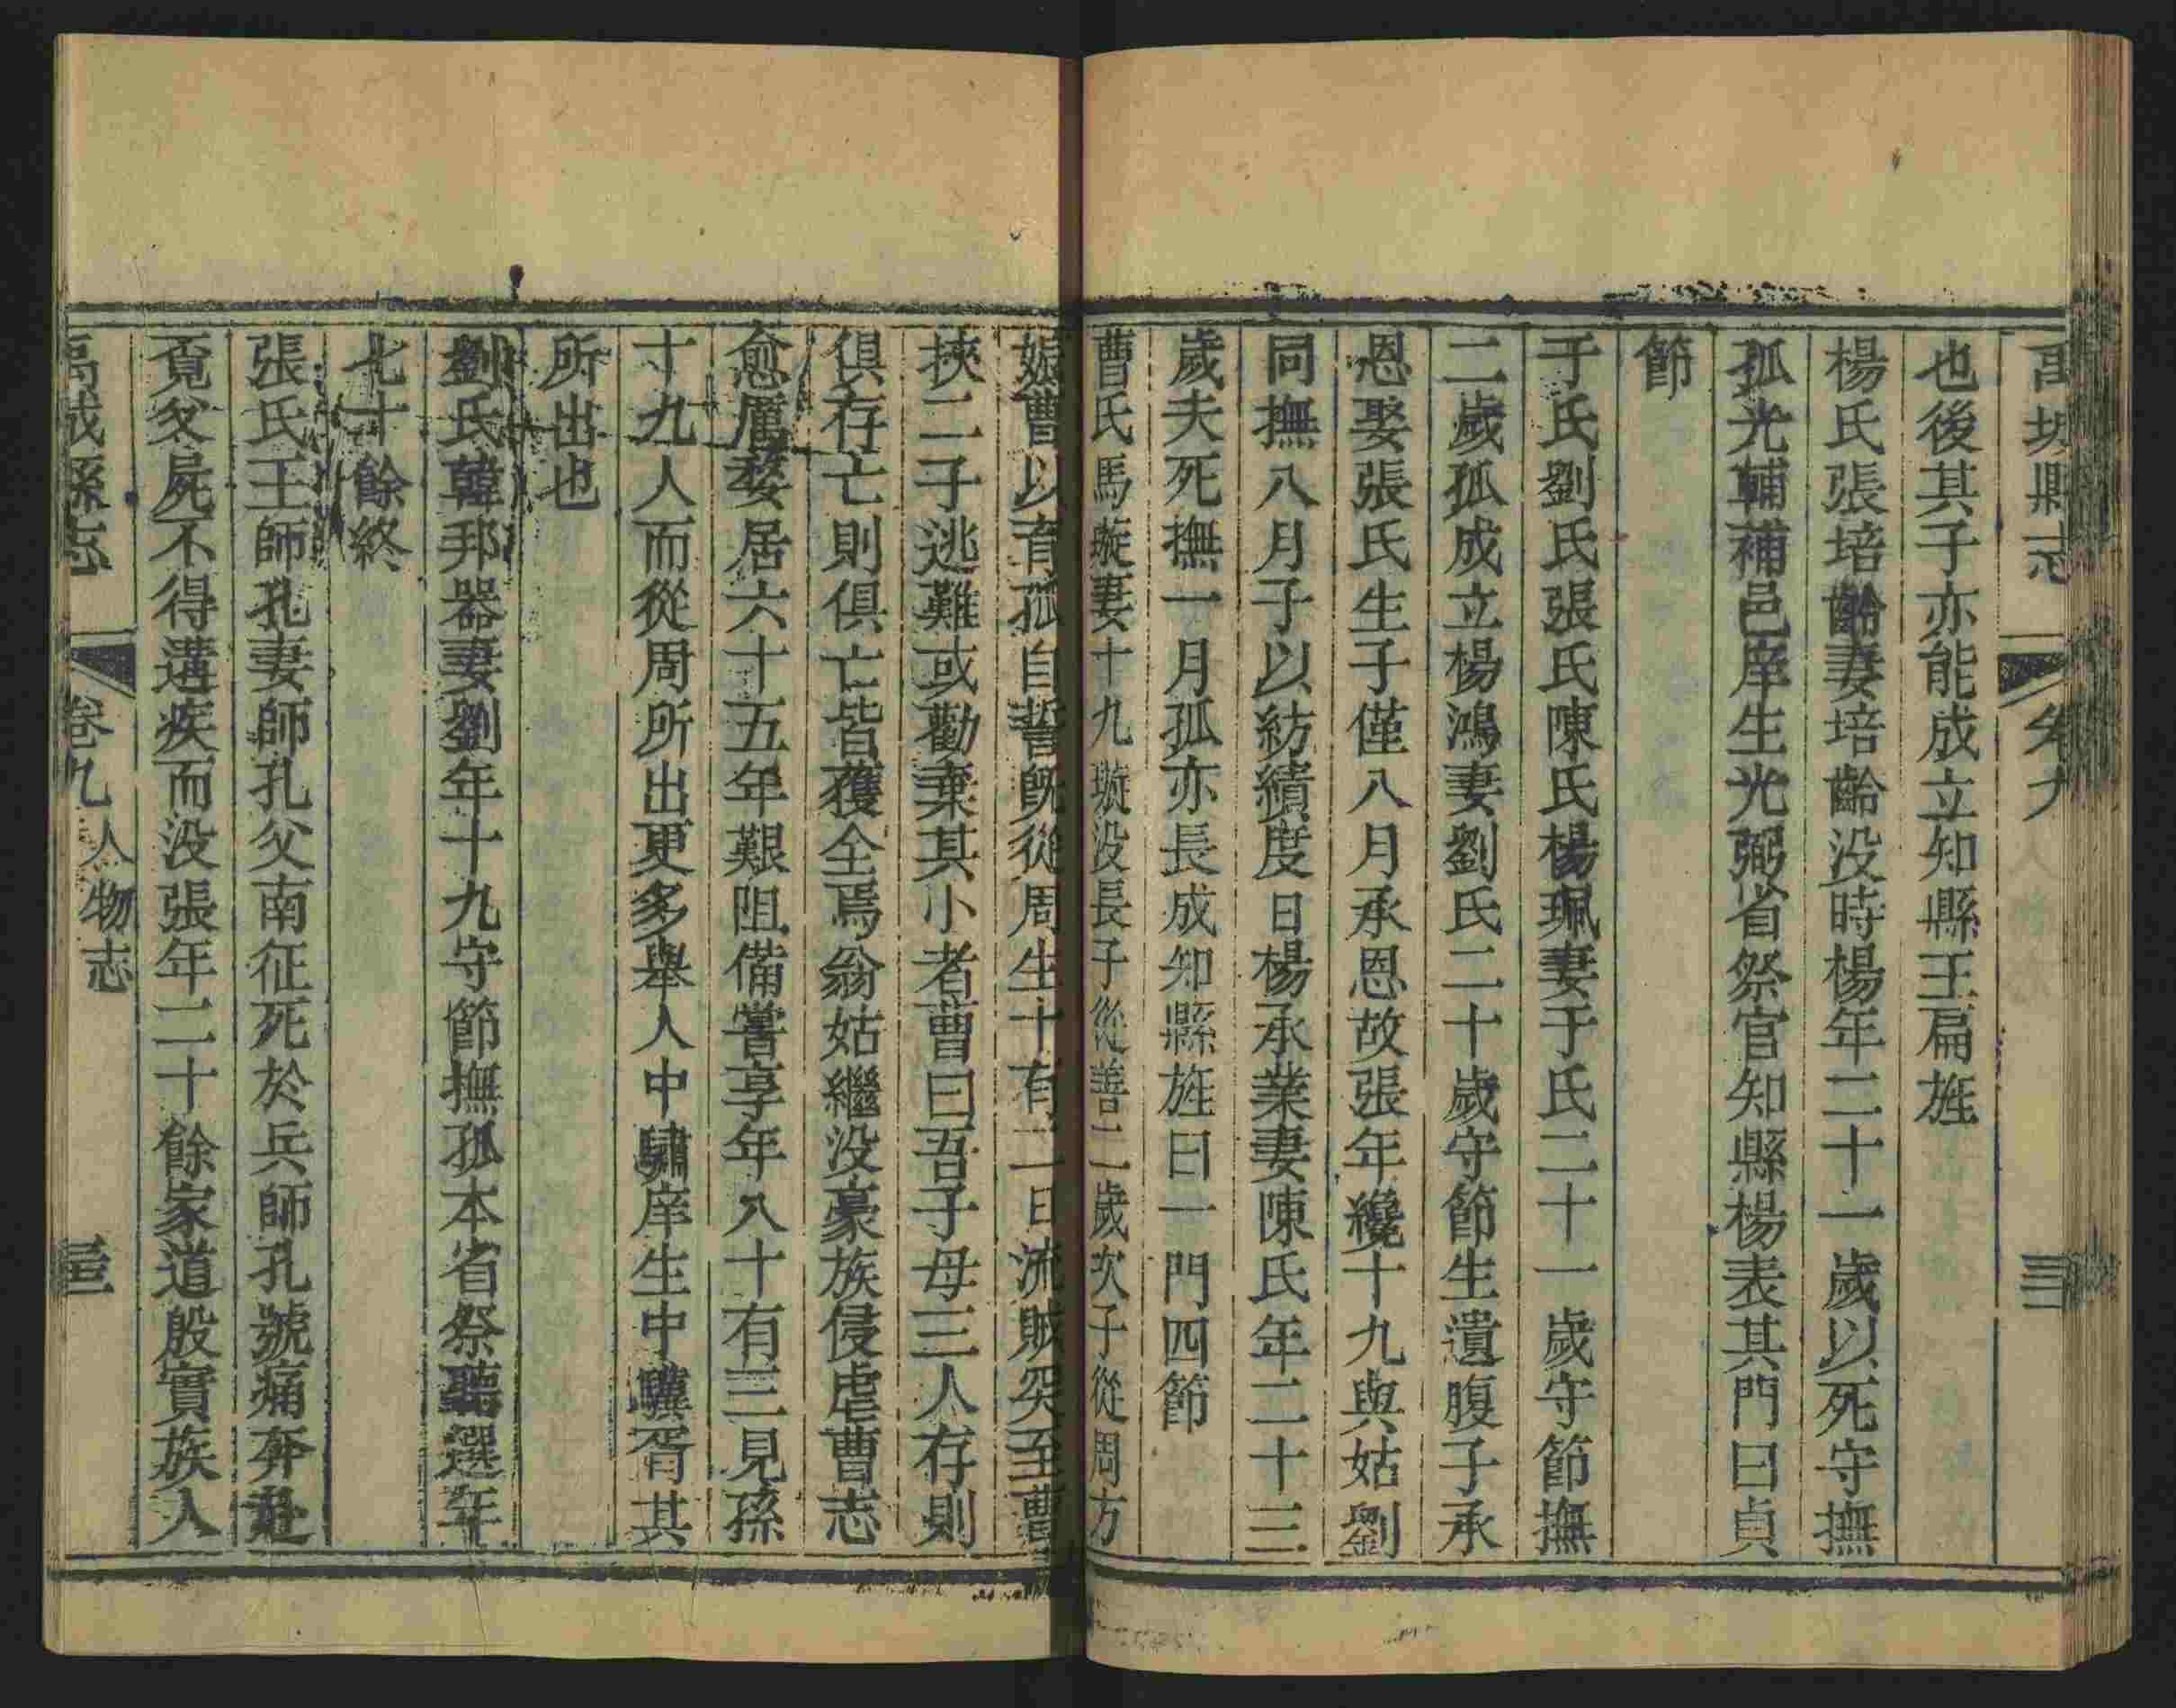 禹城縣志
卷九
也後其子亦能成立知縣王扁旌
楊氏張培齡妻培齡没時楊年二十一歲以死守撫
孤光輔補邑庠生光弼省祭官知縣楊表其門曰貞
節
于氏劉氏張氏陳氏楊珮妻于氏二十一歲守節撫
二歲孤成立楊鴻妻劉氏二十歲守節生遺腹子承
恩娶張氏生子僅八月承恩故張年纔十九與姑劉
同撫八月子以紡績度日楊承業妻陳氏年二十三
歲夫死撫一月孤亦長成知縣旌曰一門四節
曹氏馬璇妻十九璇没長子從善二歲次子從周方
娠曹以育孤自誓既從周生十有二日流賊突至曹
挾二子逃難或勸棄其小者曹曰吾子母三人存則
俱存亡則俱亡皆獲全焉翁姑繼没豪族侵虐曹志
愈厲嫠居六十五年艱阻備嘗享年八十有三見孫
十九人而從周所出更多舉人中驌庠生中驥胥其
所出也
劉氏韓邦器妻劉年十九守節撫孤本省祭聽選年
七十餘終
張氏王師孔妻師孔父南征死於兵師孔號痛奔赴
覓父屍不得遘疾而没張年二十餘家道殷實族人
禹城縣志
卷九人物志